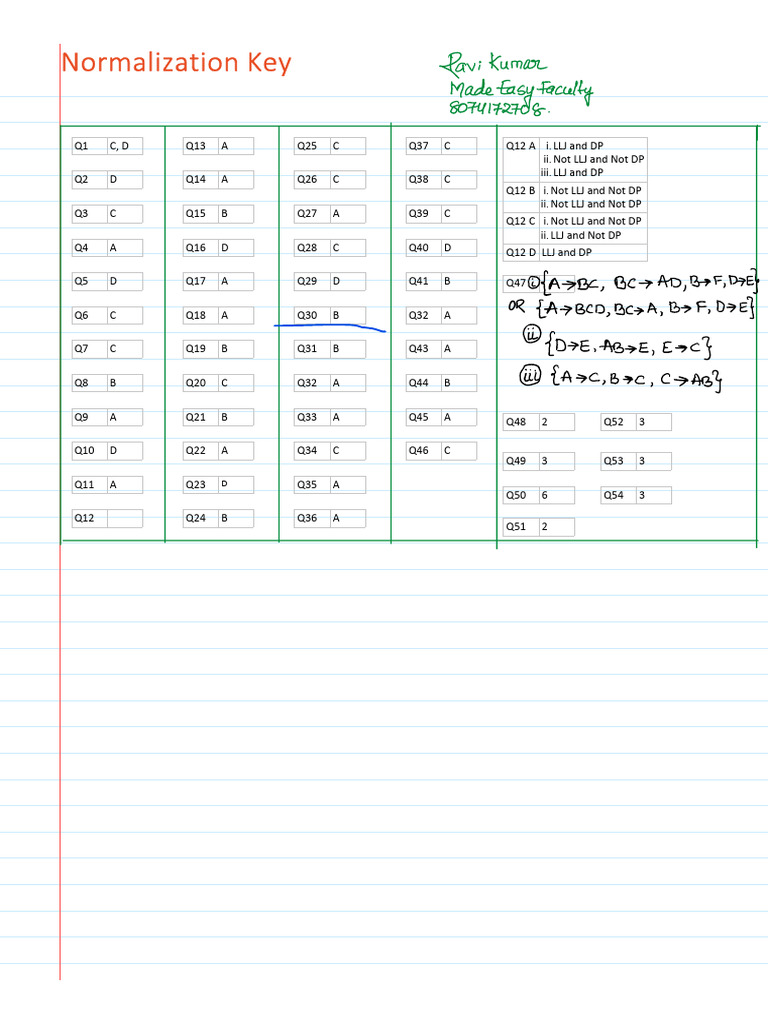 Normalization Key
Ravi Kumar
Made Easy Faculty
8074172708.
Q1 C, D
Q2 D
Q3 C
Q4 A
Q5 D
Q6 C
Q7 C
Q8 B
Q9 A
Q10 D
Q11 A
Q12
Q13 A
Q14 A
Q15 B
Q16 D
Q17 A
Q18 A
Q19 B
Q20 C
Q21 B
Q22 A
Q23 D
Q24 B
Q25 C
Q26 C
Q27 A
Q28 C
Q29 D
Q30 B
Q31 B
Q32 A
Q33 A
Q34 C
Q35 A
Q36 A
Q37 C
Q38 C
Q39 C
Q40 D
Q41 B
Q32 A
Q43 A
Q44 B
Q45 A
Q46 C
Q12 A i. LLJ and DP
ii. Not LLJ and Not DP
iii. LLJ and DP
Q12 B i. Not LLJ and Not DP
ii. Not LLJ and Not DP
Q12 C i. Not LLJ and Not DP
ii. LLJ and Not DP
Q12 D LLJ and DP
Q47 i) {A→BC, BC→AD, B→F, D→E}
OR {A→BCD, BC→A, B→F, D→E}
ii {D→E, AB→E, E→C}
iii {A→C, B→C, C→AB}
Q48 2 Q52 3
Q49 3 Q53 3
Q50 6 Q54 3
Q51 2